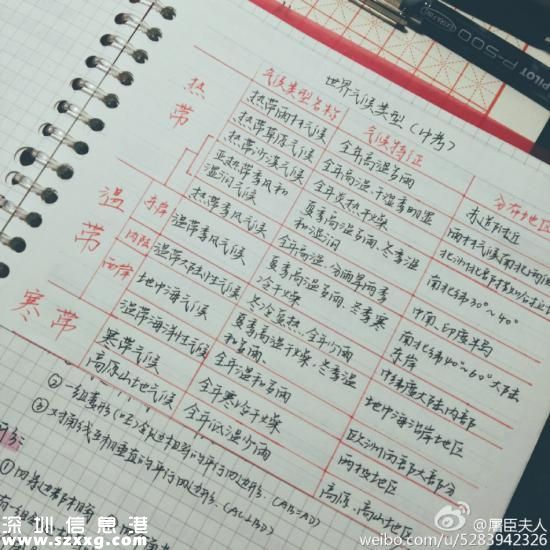 世界气候类型(中考)
气候类型名称 气候特征 分布地区
热带
热带雨林气候 全年高温多雨 赤道附近
热带草原气候 全年高温,干湿季明显 雨林气候南北两侧
热带沙漠气候 全年炎热干燥
亚热带季风和湿润气候 夏季高温多雨,冬季温和湿润 南北纬30°~40°
热带季风气候 全年高温,分雨旱两季 中南、印度半岛
温带
东岸 温带季风气候 夏季高温多雨,冬季寒冷干燥 南北纬40°~60°大陆东岸
内陆 温带大陆性气候 冬冷夏热,全年少雨 中纬度大陆内部
西岸 地中海气候 夏季高温干燥,冬季温和多雨 地中海沿岸地区
温带海洋性气候 全年温和多雨 欧洲西部大部分
寒带
寒带气候 全年寒冷干燥 两极地区
高原山地气候 全年低温少雨 高原、高山地区
② 一组邻边相等的平行四边形.(AB=AD)
③ 对角线互相垂直的平行四边形.(AC⊥BD)
PILOT P-500
深圳信息港
www.szxxg.com
@屠臣夫人
weibo.com/u/5283942326